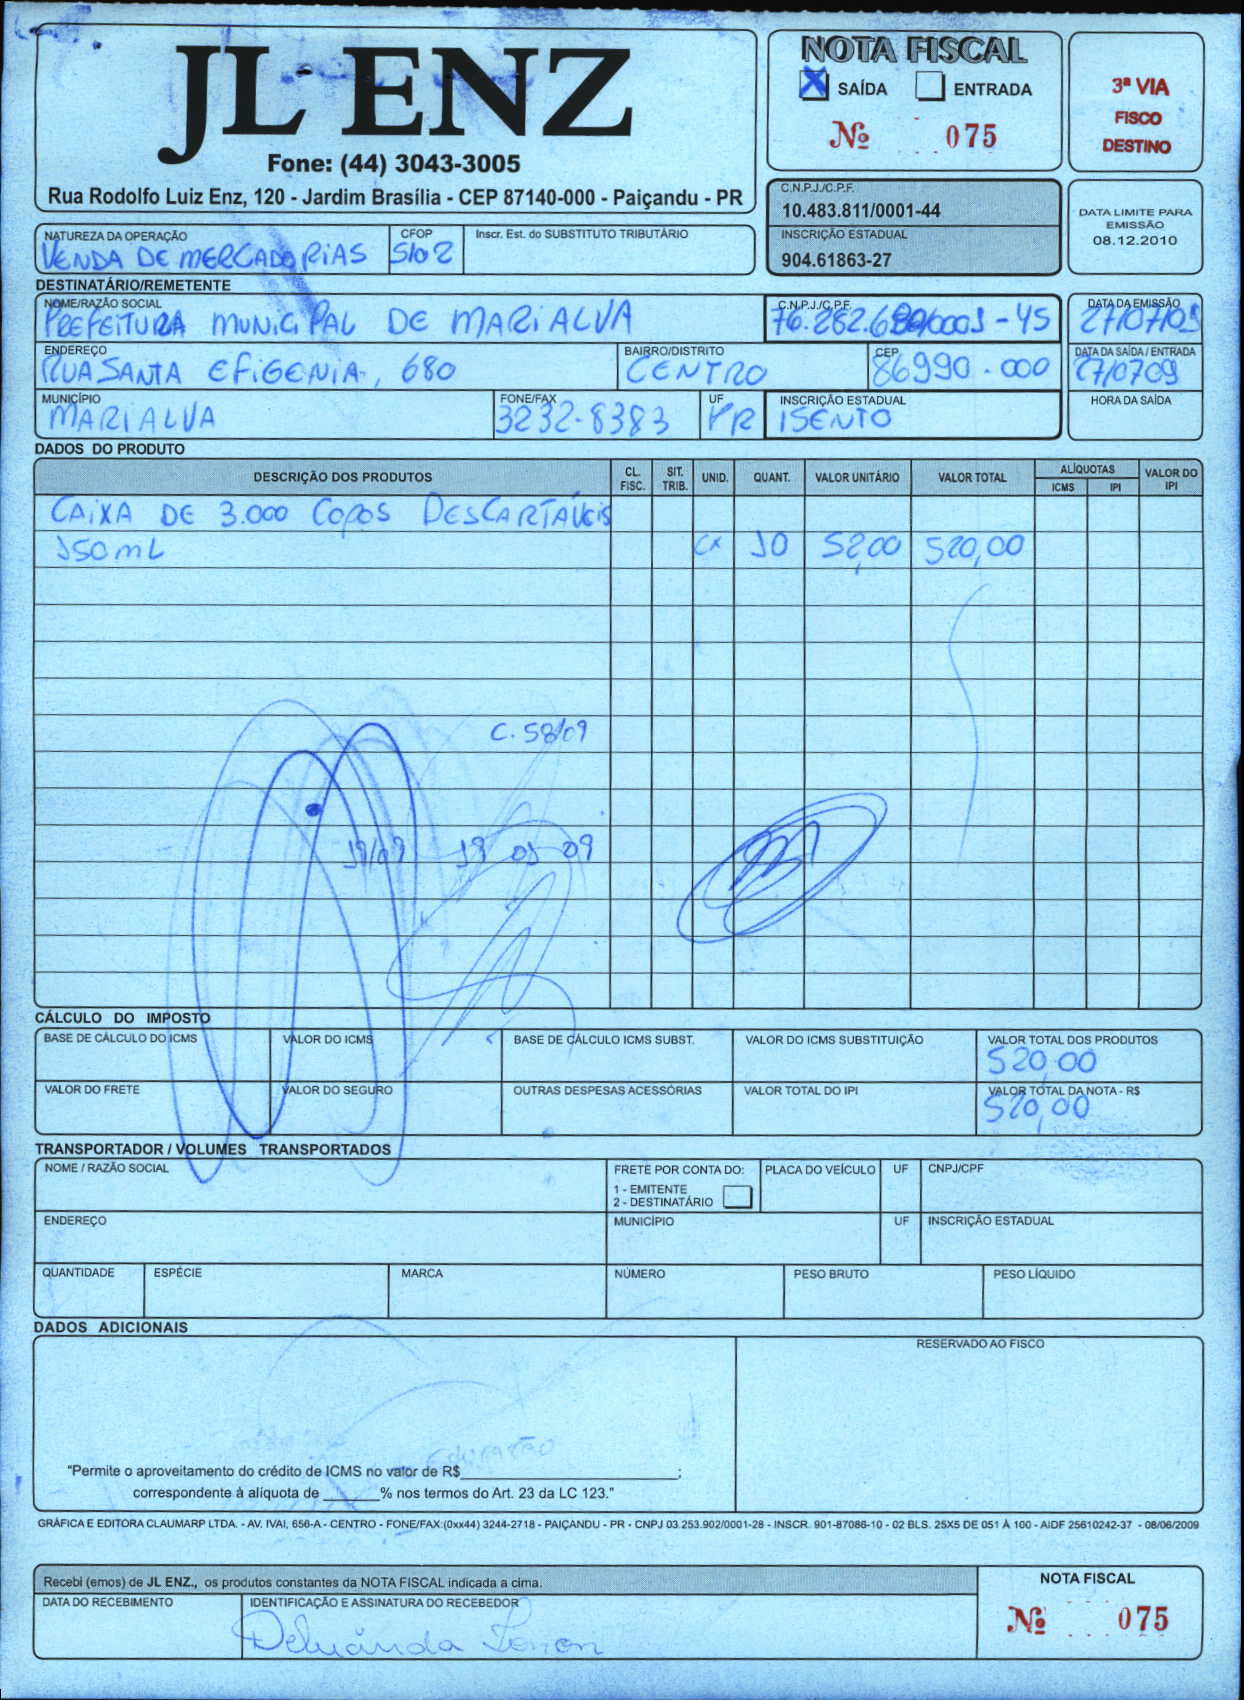 JL ENZ
Fone: (44) 3043-3005
Rua Rodolfo Luiz Enz, 120 - Jardim Brasília - CEP 87140-000 - Paiçandu - PR
NOTA FISCAL
X SAÍDA ENTRADA
Nº 075
3ª VIA
FISCO
DESTINO
C.N.P.J./C.P.F.
10.483.811/0001-44
INSCRIÇÃO ESTADUAL
904.61863-27
DATA LIMITE PARA
EMISSÃO
08.12.2010
NATUREZA DA OPERAÇÃO CFOP Inscr. Est. do SUBSTITUTO TRIBUTÁRIO
VENDA DE MERCADORIAS 5102
DESTINATÁRIO/REMETENTE
NOME/RAZÃO SOCIAL C.N.P.J./C.P.F. DATA DA EMISSÃO
PREFEITURA MUNICIPAL DE MARIALVA 76.282.680/0001-45 27/07/09
ENDEREÇO BAIRRO/DISTRITO CEP DATA DA SAÍDA / ENTRADA
RUA SANTA EFIGENIA, 680 CENTRO 86990-000 27/07/09
MUNICÍPIO FONE/FAX UF INSCRIÇÃO ESTADUAL HORA DA SAÍDA
MARIALVA 3232-8383 PR ISENTO
DADOS DO PRODUTO
DESCRIÇÃO DOS PRODUTOS CL. FISC. SIT. TRIB. UNID. QUANT. VALOR UNITÁRIO VALOR TOTAL ALÍQUOTAS ICMS IPI VALOR DO IPI
CAIXA DE 3.000 COPOS DESCARTÁVEIS
150 ML CX 10 52,00 520,00
C. 58/09
19/09 19 01 09
CÁLCULO DO IMPOSTO
BASE DE CÁLCULO DO ICMS VALOR DO ICMS BASE DE CÁLCULO ICMS SUBST. VALOR DO ICMS SUBSTITUIÇÃO VALOR TOTAL DOS PRODUTOS
520,00
VALOR DO FRETE VALOR DO SEGURO OUTRAS DESPESAS ACESSÓRIAS VALOR TOTAL DO IPI VALOR TOTAL DA NOTA - R$
520,00
TRANSPORTADOR / VOLUMES TRANSPORTADOS
NOME / RAZÃO SOCIAL FRETE POR CONTA DO: PLACA DO VEÍCULO UF CNPJ/CPF
1 - EMITENTE
2 - DESTINATÁRIO
ENDEREÇO MUNICÍPIO UF INSCRIÇÃO ESTADUAL
QUANTIDADE ESPÉCIE MARCA NÚMERO PESO BRUTO PESO LÍQUIDO
DADOS ADICIONAIS
RESERVADO AO FISCO
EDUCAÇÃO
"Permite o aproveitamento do crédito de ICMS no valor de R$ ;
correspondente à alíquota de % nos termos do Art. 23 da LC 123."
GRÁFICA E EDITORA CLAUMARP LTDA. - AV. IVAI, 656-A - CENTRO - FONE/FAX:(0xx44) 3244-2718 - PAIÇANDU - PR - CNPJ 03.253.902/0001-28 - INSCR. 901-87086-10 - 02 BLS. 25X5 DE 051 À 100 - AIDF 25610242-37 - 08/06/2009
Recebi (emos) de JL ENZ., os produtos constantes da NOTA FISCAL indicada a cima.
NOTA FISCAL
DATA DO RECEBIMENTO IDENTIFICAÇÃO E ASSINATURA DO RECEBEDOR
Nº 075